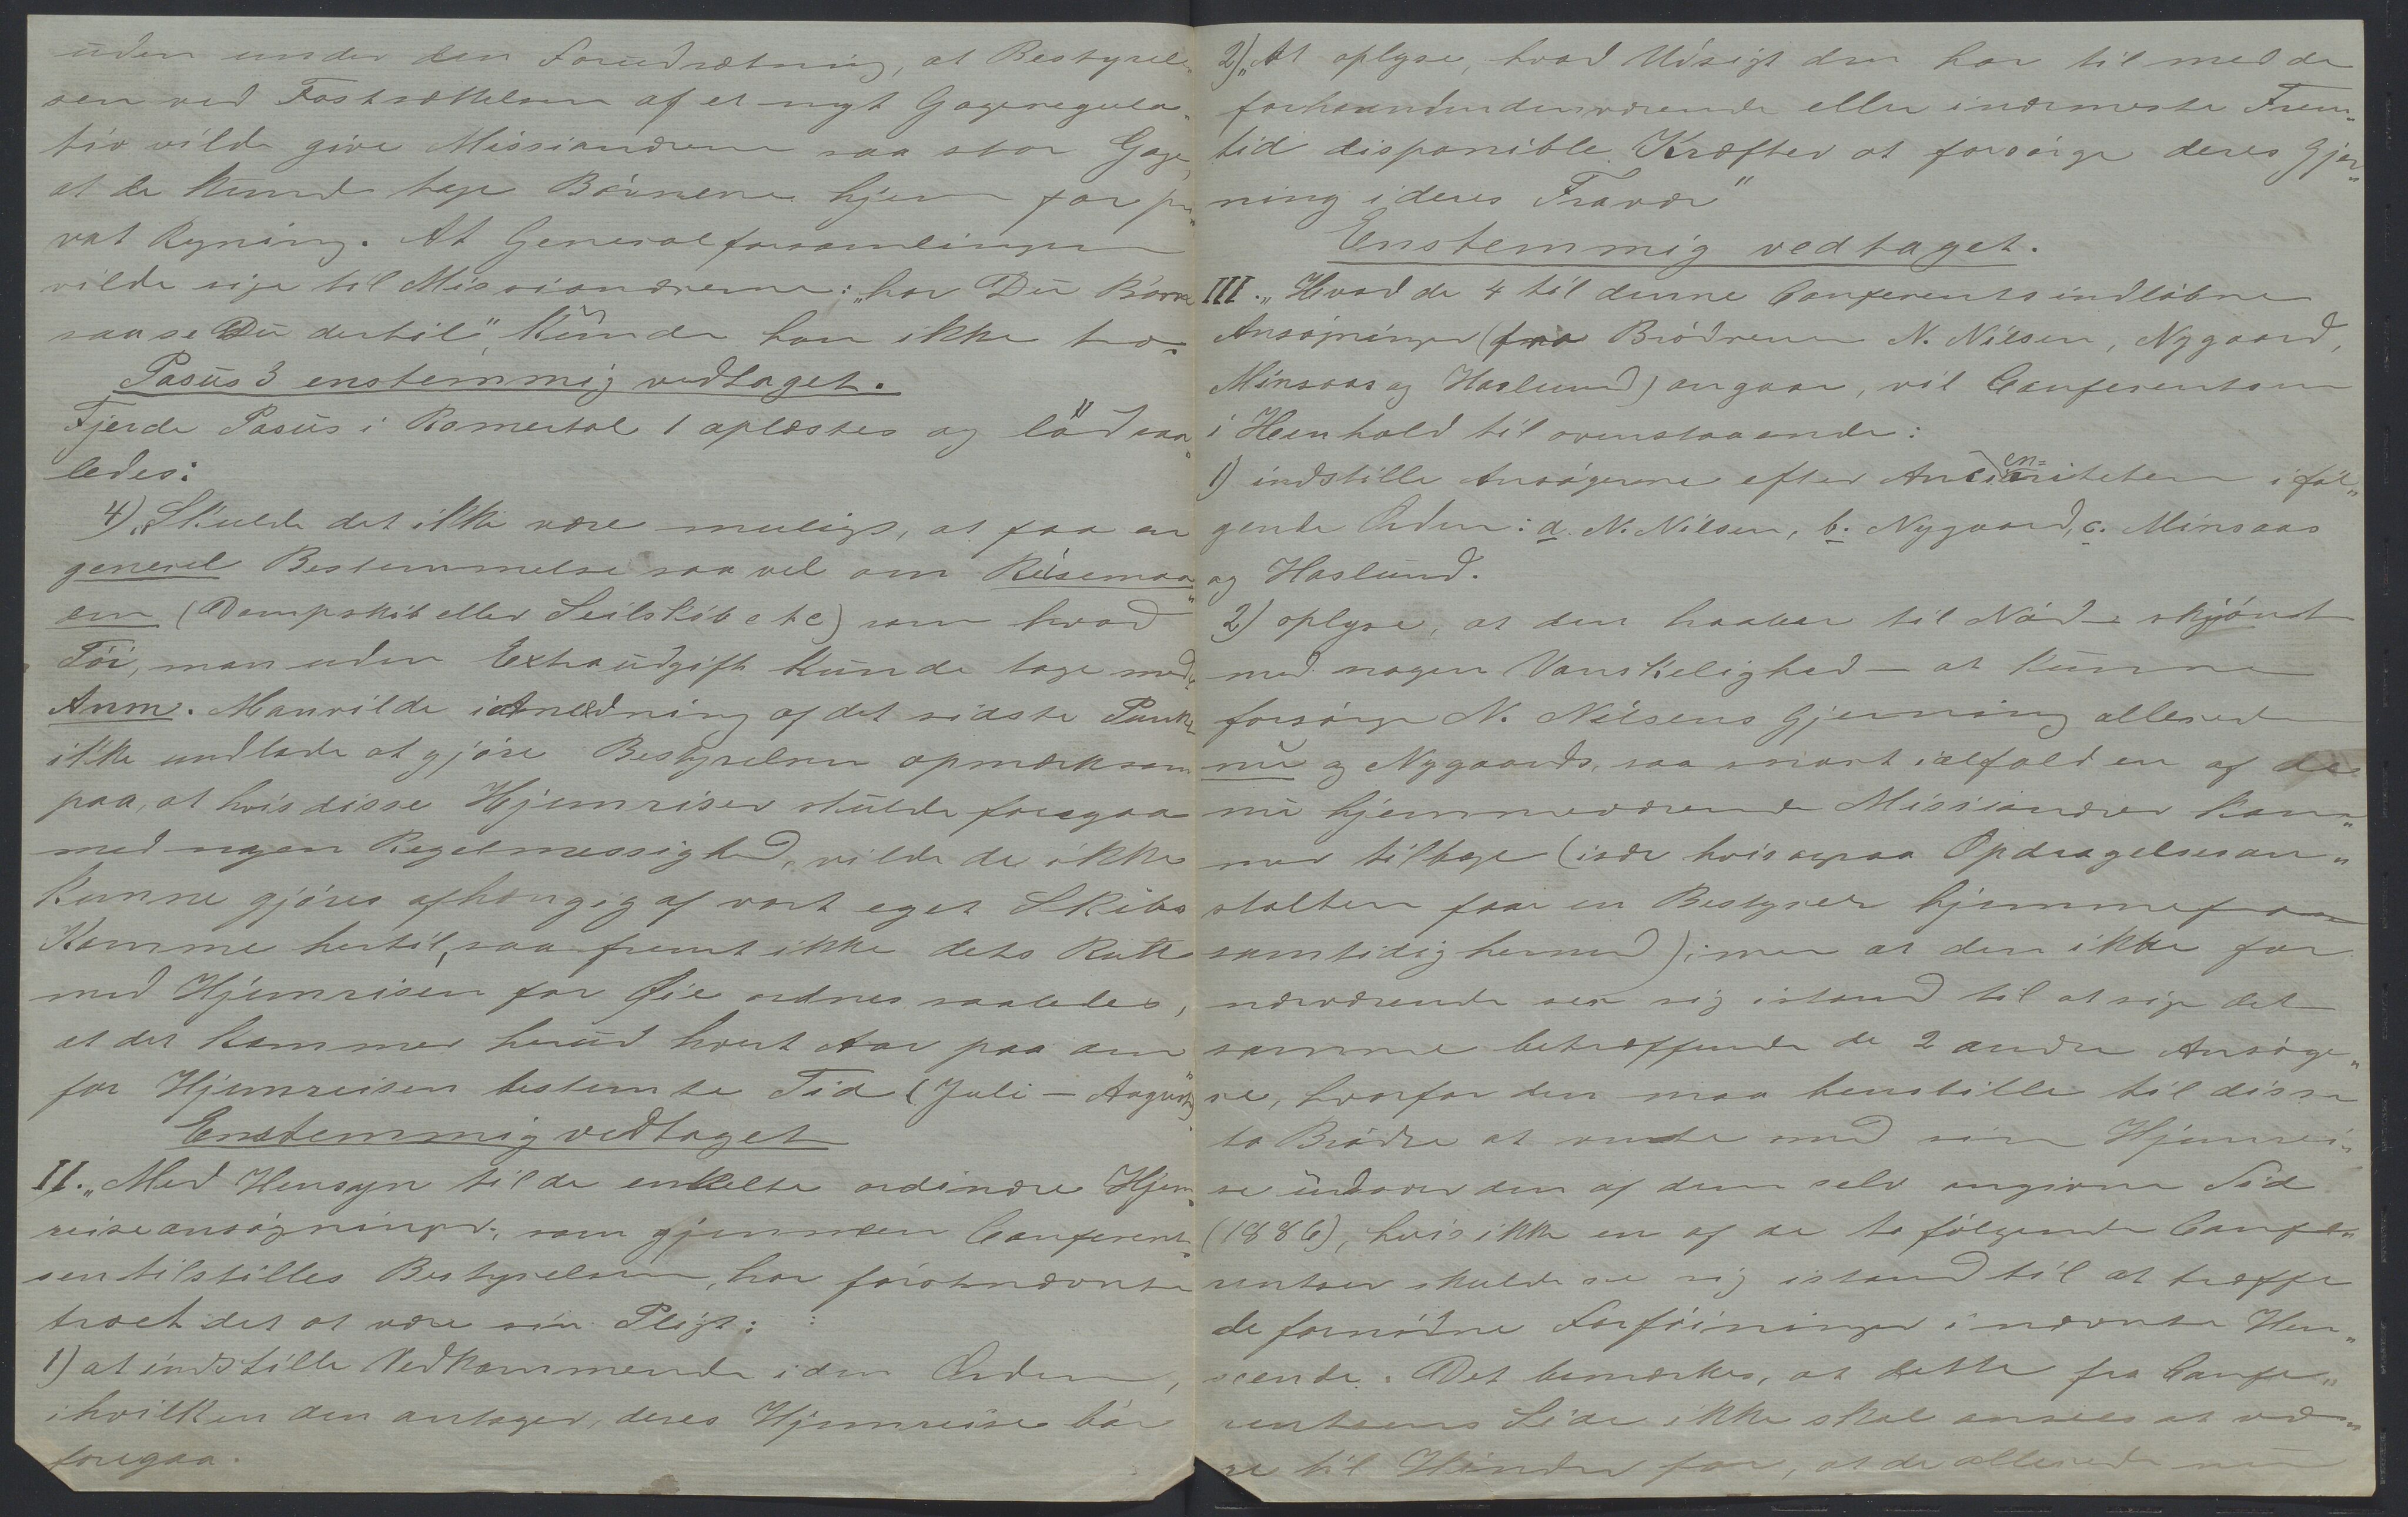 uden under den Forudsætning, at Bestyrel„
sen ved Fastsættelsen af et nyt Gageregula„
tiv vilde give Missionærerne saa stor Gage,
at de kunde tage Børnene hjem for pri„
vat Regning. At Generalforsamlingen
vilde sige til Missionærerne: „har Du Børn
saa se Du dertil", kunde han ikke tro.
Pasus 3 enstemmig vedtaget.
Fjerde Pasus i Romertal 1 oplæstes og lød saa„
ledes:
4) „Skulde det ikke være muligt, at faa en
generel Bestemmelse saavel om Reisemaa„
den (Dampskib eller Seilskib etc) som hvad
Tøi, man uden Extraudgift kunde tage med.
Anm. Man vilde i Anledning af det sidste Punkt
ikke undlade at gjøre Bestyrelsen opmærksom
paa, at hvis disse Hjemreiser skulde foregaa
med nogen Regelmessighed, vilde de ikke
kunne gjøres afhængig af vort eget Skibs
Komme hertil, saafremt ikke dets Rute
med Hjemreisen for Øie ordnes saaledes,
at det kommer herud hvert Aar paa den
for Hjemreisen bestemte Tid (Juli – August)
Enstemmig vedtaget
II. „Med Hensyn til de enkelte ordinære Hjem„
reiseansøgninger, som gjennem Conferent„
sen tilstilles Bestyrelsen, har førstnævnte
troet det at være sin Pligt:
1) at indstille Vedkommende i den Orden,
i hvilken den antager, deres Hjemreise bør
foregaa.
2) „At oplyse, hvad Udsigt den har til med de
forhaandenværende eller i nærmeste Frem„
tid disponible Kræfter at forsørge deres Gjer„
ning i deres Fravær"
Enstemmig vedtaget.
III. „Hvad de 4 til denne Conferents indløbne
Ansøgninger (fra Brødrene N. Nilsen, Nygaard,
Minsaas og Haslund) angaar, vil Conferentsen
i Henhold til ovenstaaende:
1) indstille Ansøgerne efter Ancienniteten i føl„
gende Orden: a. N. Nilsen, b. Nygaard, c. Minsaas
og Haslund.
2) oplyse, at den haaber til Nød – skjønt
med nogen Vanskelighed – at kunne
forsørge N. Nilsens Gjerning allerede
nu og Nygaards, saa snart ialfald en af de
nu hjemmeværende Missionærer kom„
mer tilbage (især hvis ogsaa Opdragelsesan„
stalten faar en Bestyrer hjemmefra
samtidig hermed); men at den ikke for
nærværende ser sig istand til at sige det
samme betræffende de 2 andre Ansøge„
re, hvorfor den maa henstille til disse
to Brødre at vente med sin Hjemrei„
se udover den af dem selv angivne Tid
(1886), hvis ikke en af de to følgende Confe„
rentser skulde se sig istand til at træffe
de fornødne Forføininger i nævnte Hen„
seende. Det bemærkes, at dette fra Confe„
rentsens Side ikke skal ansees at væ„
re til Hinder for, at de allerede nu